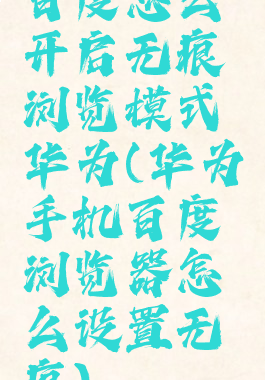 百度怎么
开启无痕
浏览模式
华为(华为
手机百度
浏览器怎
么设置无
痕)